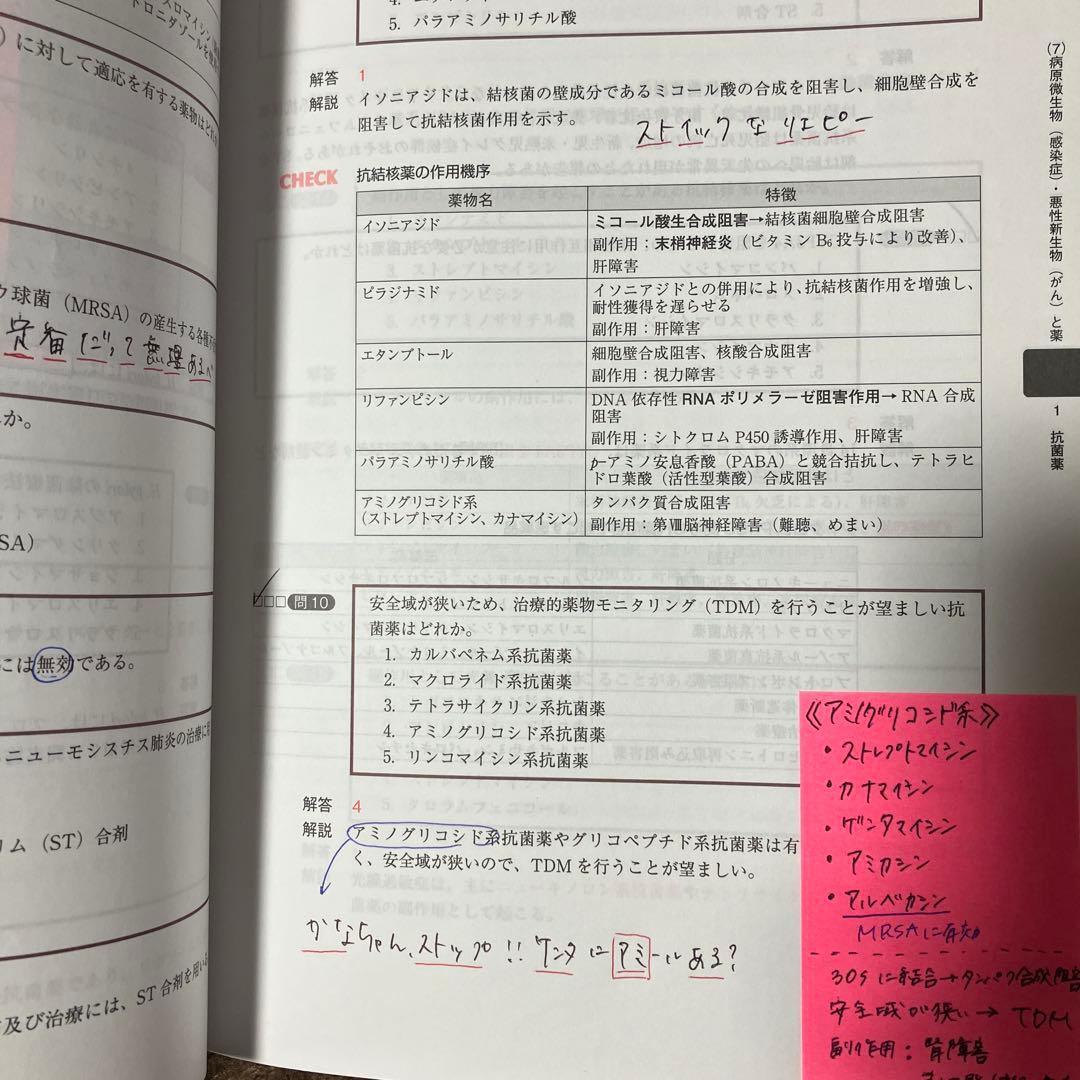 スロマイシン
トロニダゾールを
に対して適応を有する薬物はどれ
ウ球菌（MRSA）の産生する各種
定番だって無理あるべ
か。
SA）
には無効である。
ニューモシスチス肺炎の治療に
リム（ST）合剤
及び治療には、ST合剤を用い
5. パラアミノサリチル酸
解答 1
解説 イソニアジドは、結核菌の壁成分であるミコール酸の合成を阻害し、細胞壁合成を
阻害して抗結核菌作用を示す。
ストイックなリエピー
CHECK 抗結核薬の作用機序
薬物名 特徴
イソニアジド ミコール酸生合成阻害→結核菌細胞壁合成阻害
副作用：末梢神経炎（ビタミンB₆投与により改善）、
肝障害
ピラジナミド イソニアジドとの併用により、抗結核菌作用を増強し、
耐性獲得を遅らせる
副作用：肝障害
エタンブトール 細胞壁合成阻害、核酸合成阻害
副作用：視力障害
リファンピシン DNA依存性RNAポリメラーゼ阻害作用→RNA合成
阻害
副作用：シトクロムP450誘導作用、肝障害
パラアミノサリチル酸 p-アミノ安息香酸（PABA）と競合拮抗し、テトラヒ
ドロ葉酸（活性型葉酸）合成阻害
アミノグリコシド系 タンパク質合成阻害
（ストレプトマイシン、カナマイシン） 副作用：第Ⅷ脳神経障害（難聴、めまい）
問10 安全域が狭いため、治療的薬物モニタリング（TDM）を行うことが望ましい抗
菌薬はどれか。
1. カルバペネム系抗菌薬
2. マクロライド系抗菌薬
3. テトラサイクリン系抗菌薬
4. アミノグリコシド系抗菌薬
5. リンコマイシン系抗菌薬
解答 4
解説 アミノグリコシド系抗菌薬やグリコペプチド系抗菌薬は有
く、安全域が狭いので、TDMを行うことが望ましい。
かなちゃん、ストップ!! ゲンタにアミールある?
《アミノグリコシド系》
・ストレプトマイシン
・カナマイシン
・ゲンタマイシン
・アミカシン
・アルベカシン
MRSAに有効
30Sに結合→タンパク合成阻害
安全域が狭い→TDM
副作用：腎障害
(7) 病原微生物（感染症）・悪性新生物（がん）と薬
1 抗菌薬